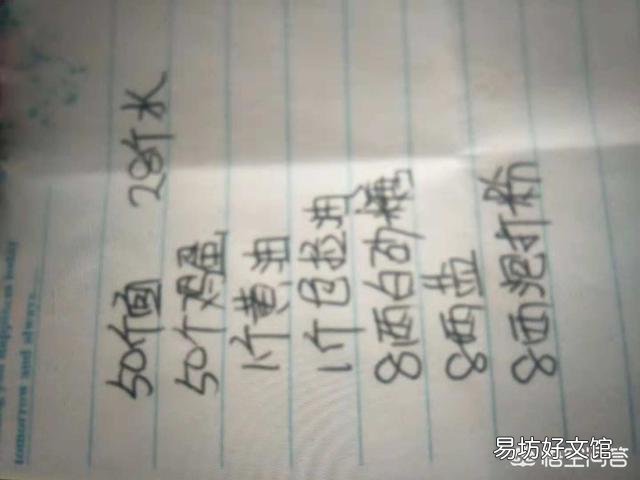 50个面 28个水
50个鸡蛋
1个黄油
1个色拉油
8两白砂糖
8两盐
8两泡打粉
tomorrow and always...
易坊好文馆
悟空问答